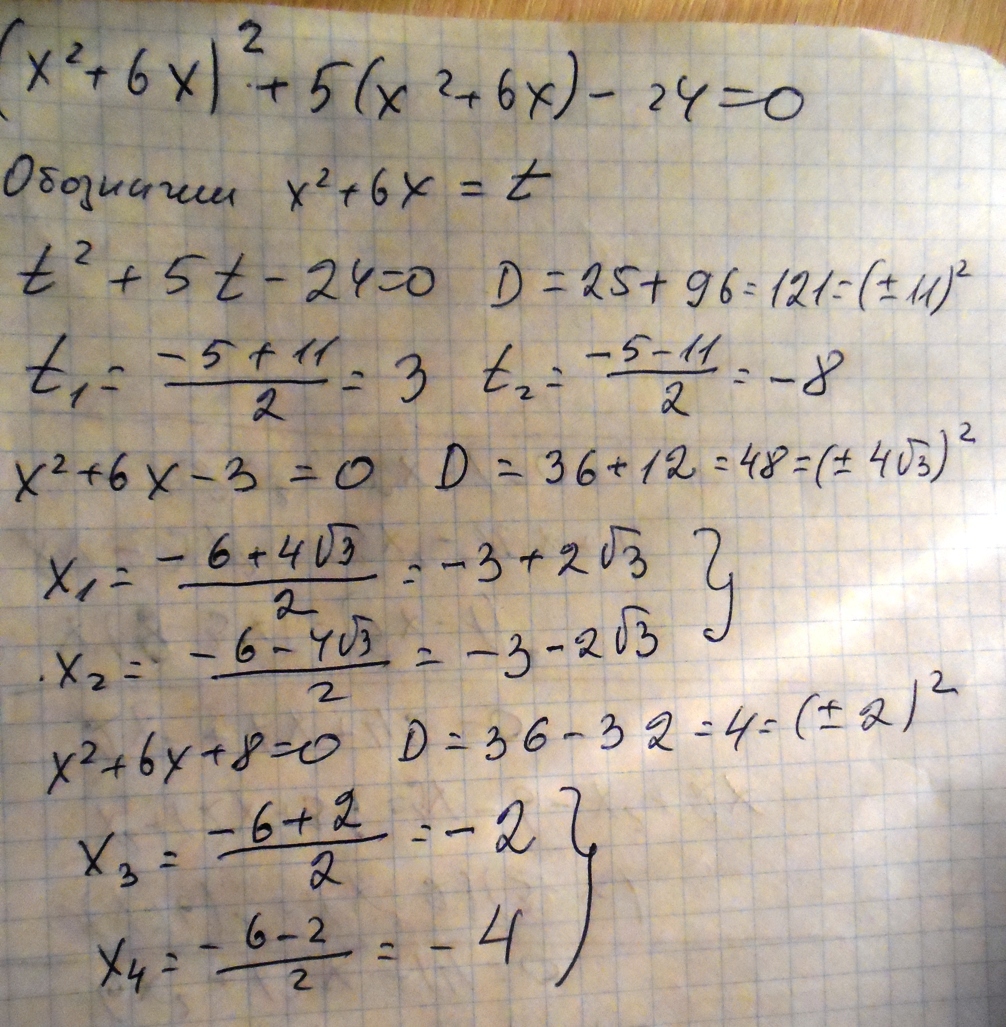 (x²+6x)²+5(x²+6x)-24=0
Обозначим x²+6x=t
t²+5t-24=0 D=25+96=121=(±11)²
t₁=(-5+11)/2=3 t₂=(-5-11)/2=-8
x²+6x-3=0 D=36+12=48=(±4√3)²
x₁=(-6+4√3)/2=-3+2√3 }
x₂=(-6-4√3)/2=-3-2√3
x²+6x+8=0 D=36-32=4=(±2)²
x₃=(-6+2)/2=-2 }
x₄=(-6-2)/2=-4